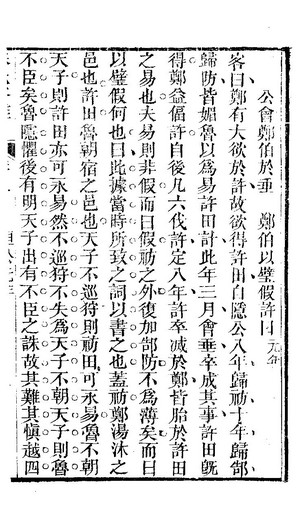 公會鄭伯於垂　鄭伯以璧假許田元年
客曰鄭有大欲於許故欲得許田自隱公八年歸祊十年歸郜
歸防皆媚魯以為易許田計此年三月會垂卒成其事許田既
得鄭益偪許自後凡六伐許定八年許卒滅於鄭皆胎於許田
之易也夫易則非假而曰假祊之外復加郜防不為薄矣而曰
以璧假何也曰此據當時所致之詞以書之也蓋祊鄭湯沐之
邑也許田魯朝宿之邑也天子不巡狩則祊田可永易魯不朝
天子則許田亦可永易然不巡狩不失為天子不朝天子則魯
不臣矣魯隱懼後有明天子出有不臣之誅故其難其愼越四